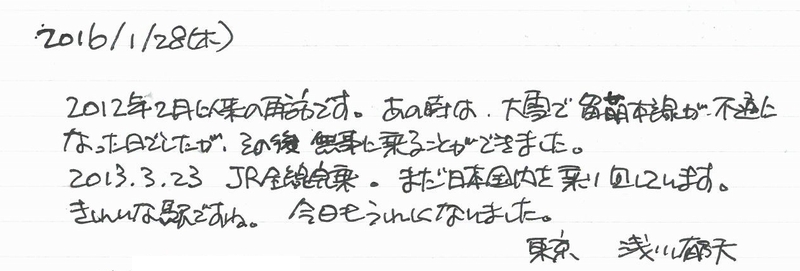 2016/1/28(木)
2012年2月以来の再訪です。あの時は、大雪で留萌本線が不通に
なった日でしたが、その後無事に乗ることができました。
2013.3.23 JR全線完乗。まだ日本国内を乗り回しています。
きれいな駅ですね。今日もうれしくなりました。
東京 浅川